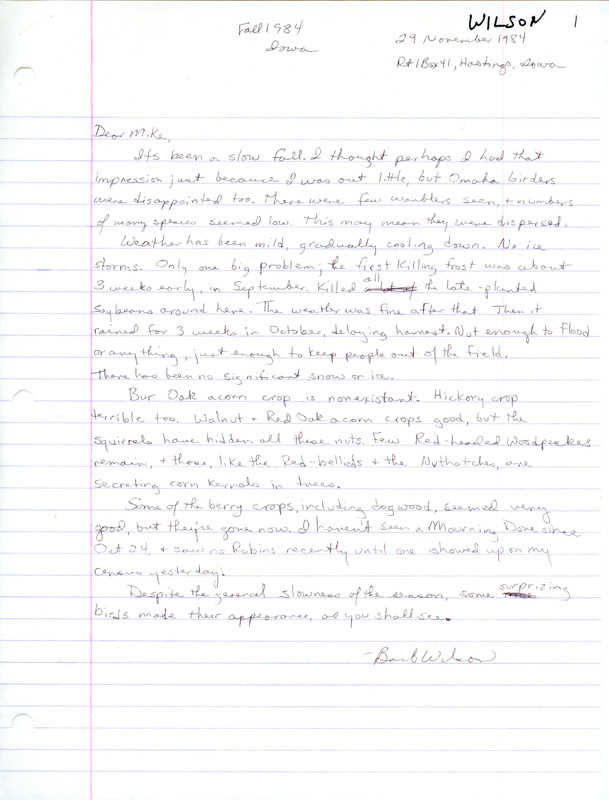 WILSON 1
Fall 1984
Iowa
29 November 1984
Rt 1 Box 41, Hastings, Iowa
Dear Mike,
Its been a slow fall. I thought perhaps I had that
impression just because I was out little, but Omaha birders
were disappointed too. There were few warblers seen, + numbers
of many species seemed low. This may mean they were dispersed.
Weather has been mild, gradually cooling down. No ice
storms. Only one big problem; the first killing frost was about
3 weeks early, in September. Killed all the late-planted
soybeans around here. The weather was fine after that. Then it
rained for 3 weeks in October, delaying harvest. Not enough to flood
or anything, just enough to keep people out of the field.
There has been no significant snow or ice.
Bur Oak acorn crop is nonexistant. Hickory crop
terrible too. Walnut + Red Oak acorn crops good, but the
squirrels have hidden all these nuts. Few Red-headed Woodpeckers
remain, + those, like the Red-bellieds + the Nuthatches, are
secreting corn kernals in trees.
Some of the berry crops, including dogwood, seemed very
good, but they're gone now. I haven't seen a Mourning Dove since
Oct 24, + saw no Robins recently until one showed up on my
census yesterday.
Despite the general slowness of the season, some surprizing
birds made their appearance, as you shall see.
- Barb Wilson